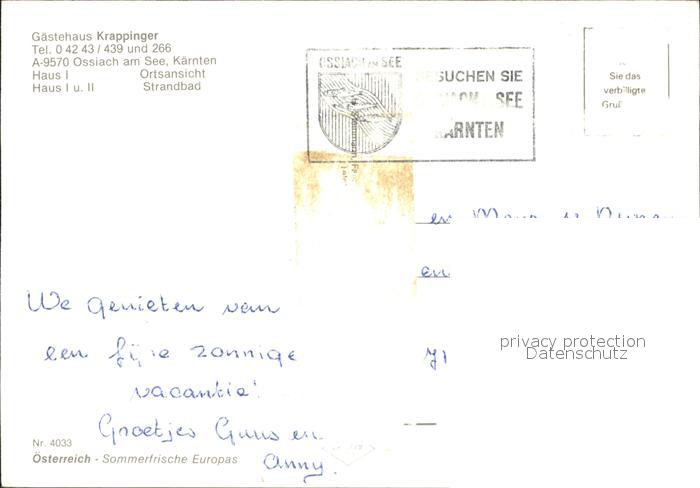 Gästehaus Krappinger
Tel. 0 42 43 / 439 und 266
A-9570 Ossiach am See, Kärnten
Haus I Ortsansicht
Haus I u. II Strandbad
OSSIACH AM SEE
BESUCHEN SIE
OSSIACH SEE
KÄRNTEN
Sie das
verbilligte
en
en
We genieten van
een fijne zonnige
vacantie!
Groetjes Guus en
Anny.
privacy protection
Datenschutz
Nr. 4033
Österreich - Sommerfrische Europas